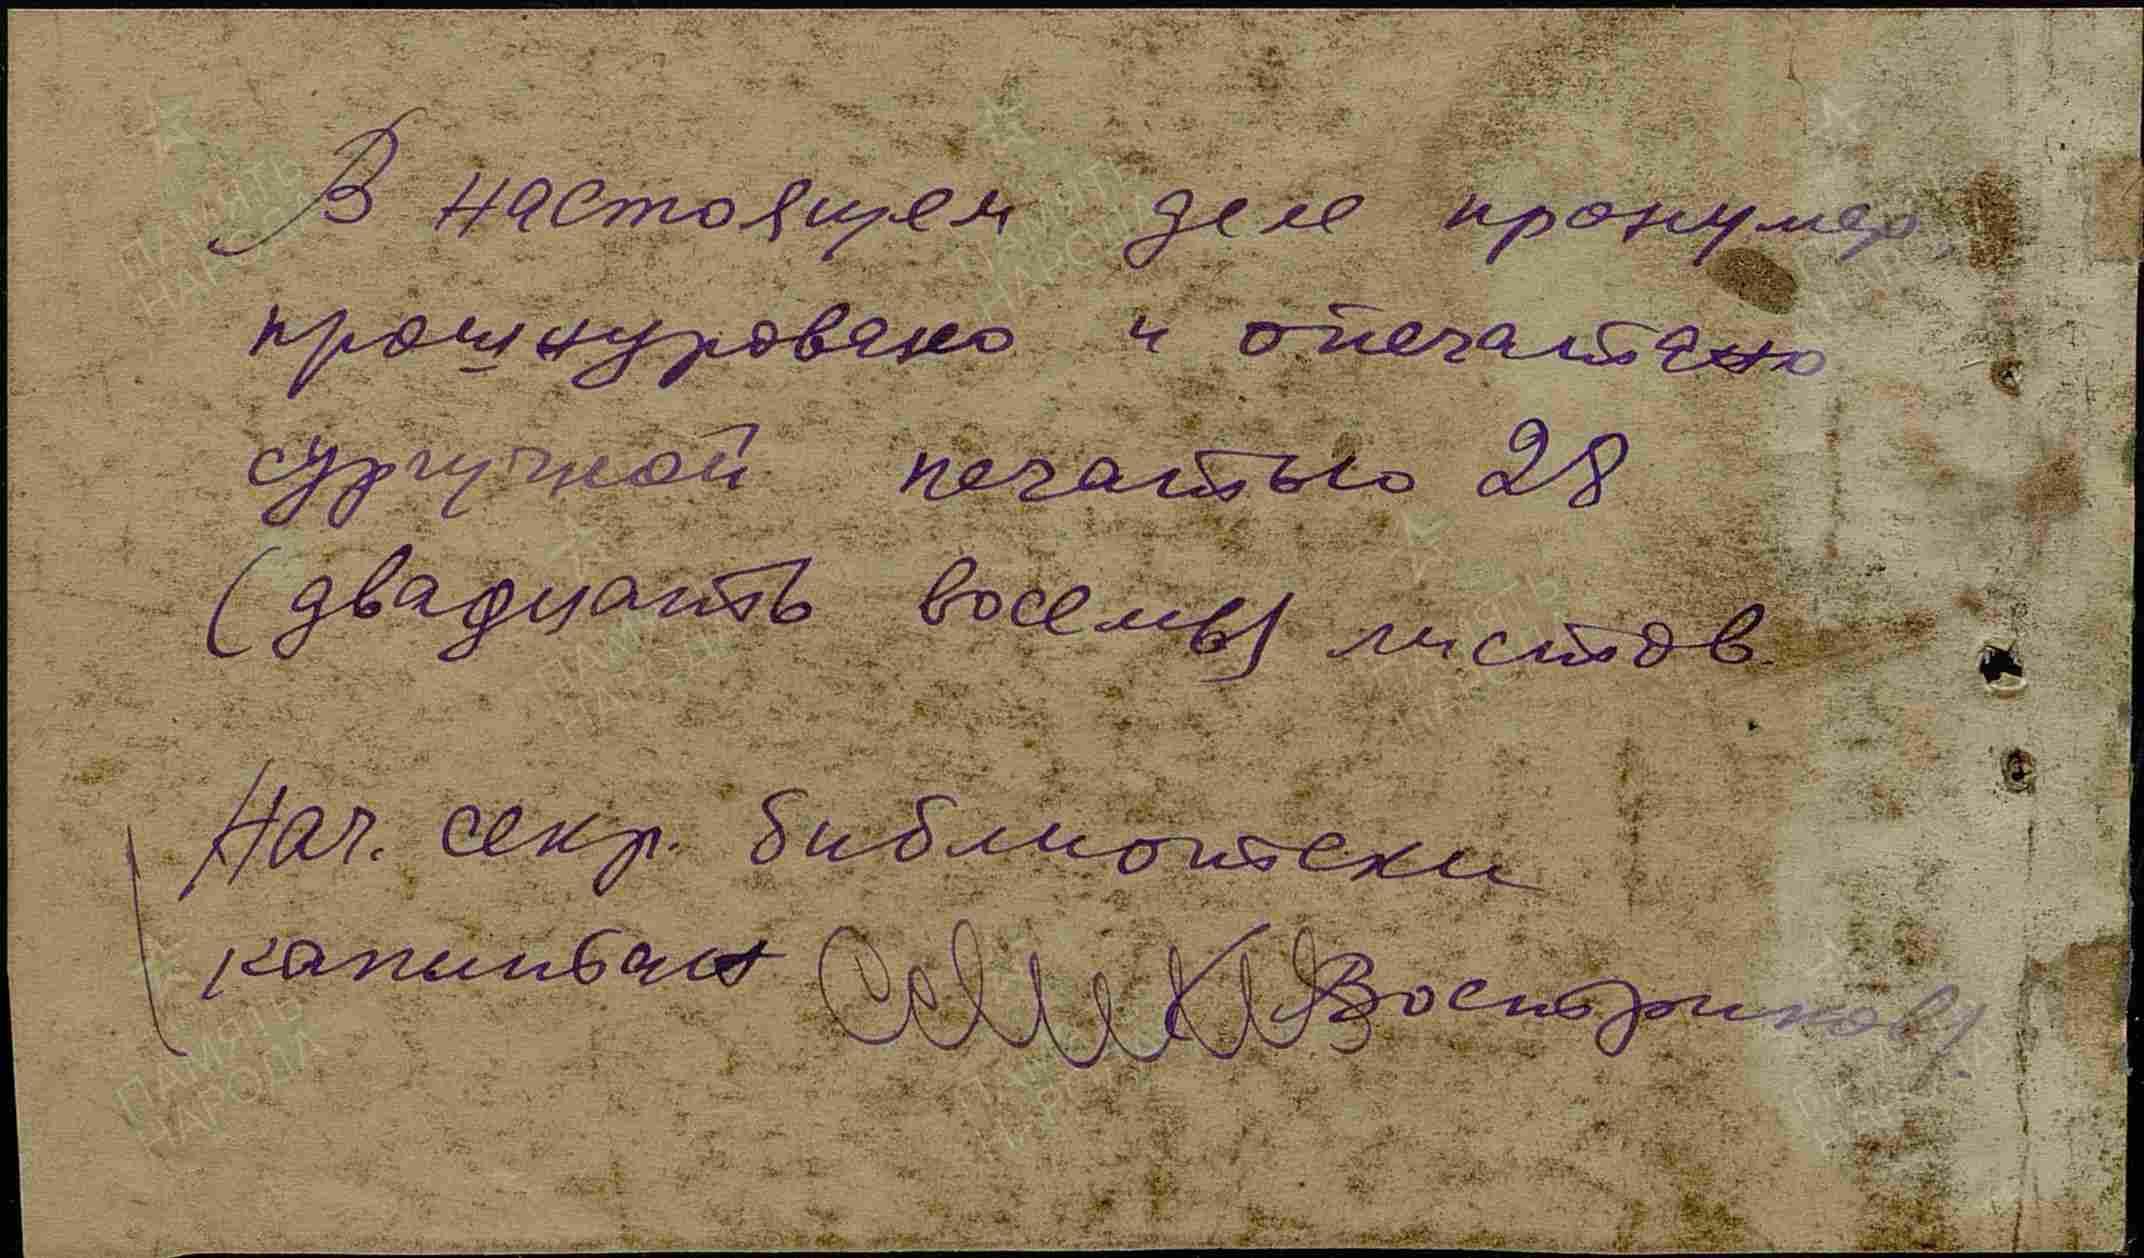 В настоящем деле пронумер,
прошнуровано и опечатано
сургучной печатью 28
(двадцать восемь) листов
Нач. секр. библиотеки
капитан (Востриков)
ПАМЯТЬ
НАРОДА